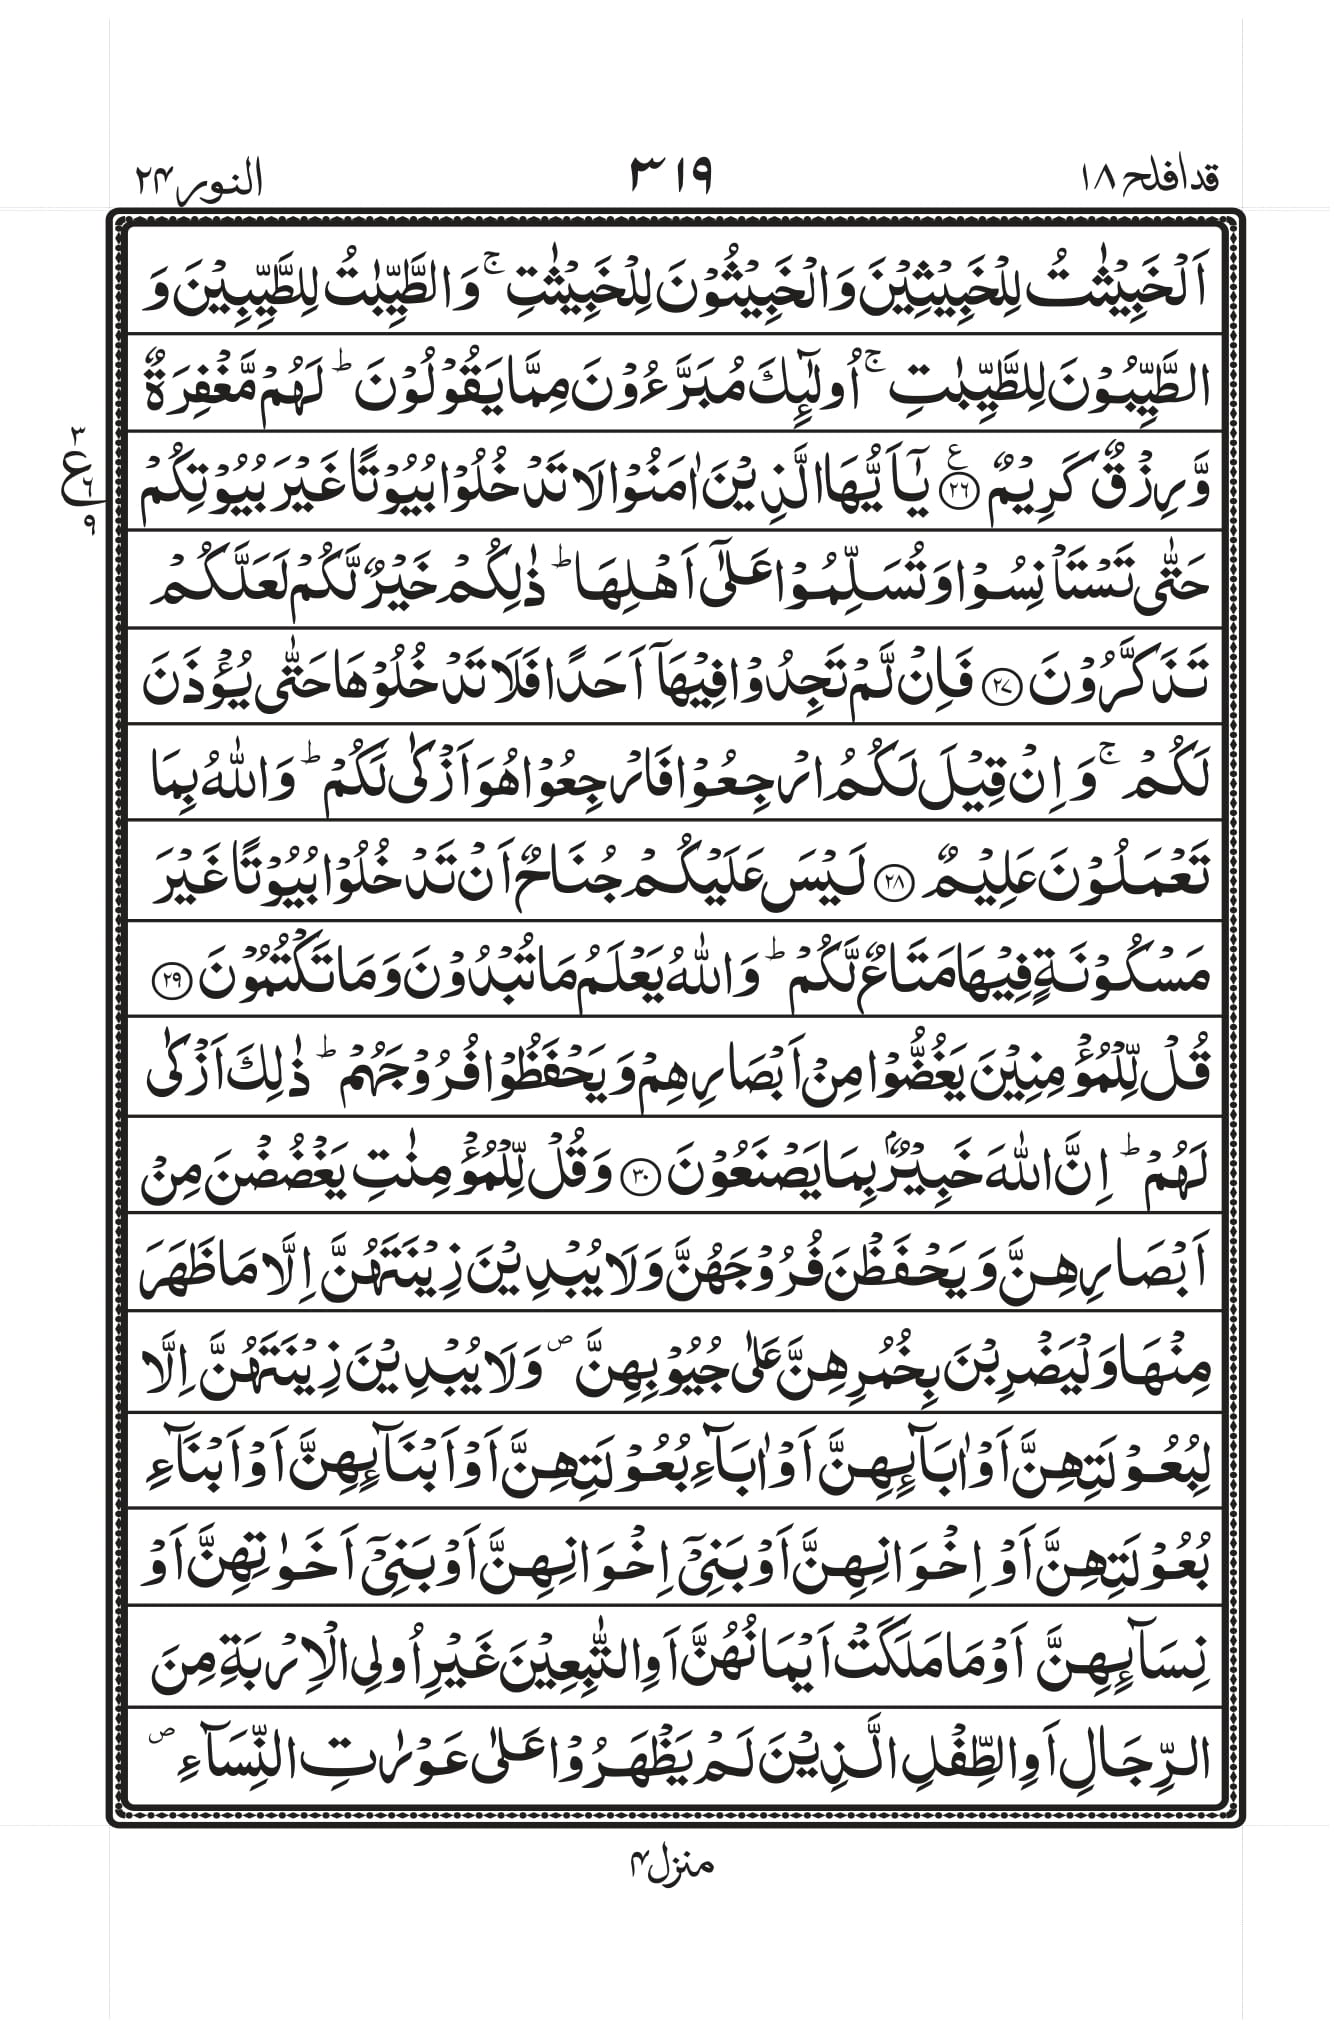 قدافلح ١٨
٣١٩
النور ٢٤
اَلۡخَبِيۡثٰتُ لِلۡخَبِيۡثِيۡنَ وَالۡخَبِيۡثُوۡنَ لِلۡخَبِيۡثٰتِ ۚ وَالطَّيِّبٰتُ لِلطَّيِّبِيۡنَ وَ
الطَّيِّبُوۡنَ لِلطَّيِّبٰتِ ۚ اُولٰٓئِكَ مُبَرَّءُوۡنَ مِمَّا يَقُوۡلُوۡنَ ؕ لَهُمۡ مَّغۡفِرَةٌ
وَّرِزۡقٌ كَرِيۡمٌ ﴿۲۶﴾ ع يٰۤاَيُّهَا الَّذِيۡنَ اٰمَنُوۡا لَا تَدۡخُلُوۡا بُيُوۡتًا غَيۡرَ بُيُوۡتِكُمۡ
٣
ع ٦
٩
حَتّٰى تَسۡتَاۡنِسُوۡا وَتُسَلِّمُوۡا عَلٰٓى اَهۡلِهَا ؕ ذٰلِكُمۡ خَيۡرٌ لَّكُمۡ لَعَلَّكُمۡ
تَذَكَّرُوۡنَ ﴿۲۷﴾ فَاِنۡ لَّمۡ تَجِدُوۡا فِيۡهَاۤ اَحَدًا فَلَا تَدۡخُلُوۡهَا حَتّٰى يُؤۡذَنَ
لَكُمۡ ۚ وَاِنۡ قِيۡلَ لَكُمُ ارۡجِعُوۡا فَارۡجِعُوۡا هُوَ اَزۡكٰى لَكُمۡ ؕ وَاللّٰهُ بِمَا
تَعۡمَلُوۡنَ عَلِيۡمٌ ﴿۲۸﴾ لَـيۡسَ عَلَيۡكُمۡ جُنَاحٌ اَنۡ تَدۡخُلُوۡا بُيُوۡتًا غَيۡرَ
مَسۡكُوۡنَةٍ فِيۡهَا مَتَاعٌ لَّكُمۡ ؕ وَاللّٰهُ يَعۡلَمُ مَا تُبۡدُوۡنَ وَمَا تَكۡتُمُوۡنَ ﴿۲۹﴾
قُلۡ لِّلۡمُؤۡمِنِيۡنَ يَغُضُّوۡا مِنۡ اَبۡصَارِهِمۡ وَيَحۡفَظُوۡا فُرُوۡجَهُمۡ ؕ ذٰلِكَ اَزۡكٰى
لَهُمۡ ؕ اِنَّ اللّٰهَ خَبِيۡرٌۢ بِمَا يَصۡنَعُوۡنَ ﴿۳۰﴾ وَقُلۡ لِّلۡمُؤۡمِنٰتِ يَغۡضُضۡنَ مِنۡ
اَبۡصَارِهِنَّ وَيَحۡفَظۡنَ فُرُوۡجَهُنَّ وَلَا يُبۡدِيۡنَ زِيۡنَتَهُنَّ اِلَّا مَا ظَهَرَ
مِنۡهَا وَلۡيَضۡرِبۡنَ بِخُمُرِهِنَّ عَلٰى جُيُوۡبِهِنَّ ۖ وَلَا يُبۡدِيۡنَ زِيۡنَتَهُنَّ اِلَّا
لِبُعُوۡلَتِهِنَّ اَوۡ اٰبَآئِهِنَّ اَوۡ اٰبَآءِ بُعُوۡلَتِهِنَّ اَوۡ اَبۡنَآئِهِنَّ اَوۡ اَبۡنَآءِ
بُعُوۡلَتِهِنَّ اَوۡ اِخۡوَانِهِنَّ اَوۡ بَنِىۡۤ اِخۡوَانِهِنَّ اَوۡ بَنِىۡۤ اَخَوٰتِهِنَّ اَوۡ
نِسَآئِهِنَّ اَوۡ مَا مَلَكَتۡ اَيۡمَانُهُنَّ اَوِ التّٰبِعِيۡنَ غَيۡرِ اُولِى الۡاِرۡبَةِ مِنَ
الرِّجَالِ اَوِ الطِّفۡلِ الَّذِيۡنَ لَمۡ يَظۡهَرُوۡا عَلٰى عَوۡرٰتِ النِّسَآءِ ۖ
منزل ٤